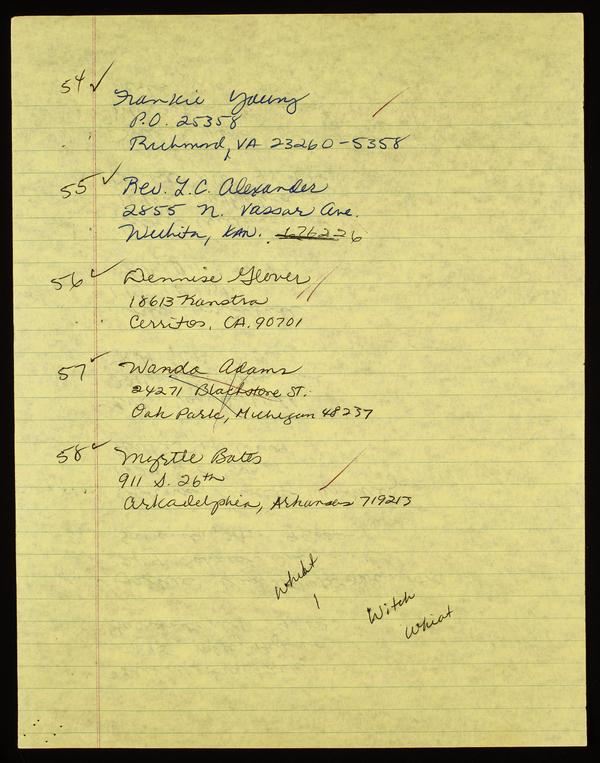 54 ✓ Frankie Young
P.O. 25358
Richmond, VA 23260-5358
55 ✓ Rev. L.C. Alexander
2855 N. Vassar Ave.
Wichita, KAN. 676226
56 ✓ Dennise Glover
18613 Kanstra
Cerritos, CA. 90701
57 ✓ Wanda Adams
24271 Blackstone ST.
Oak Park, Michegan 48237
58 ✓ Myrtle Bates
911 S. 26th
Arkadelphia, Arkansas 719213
Witch
whiat